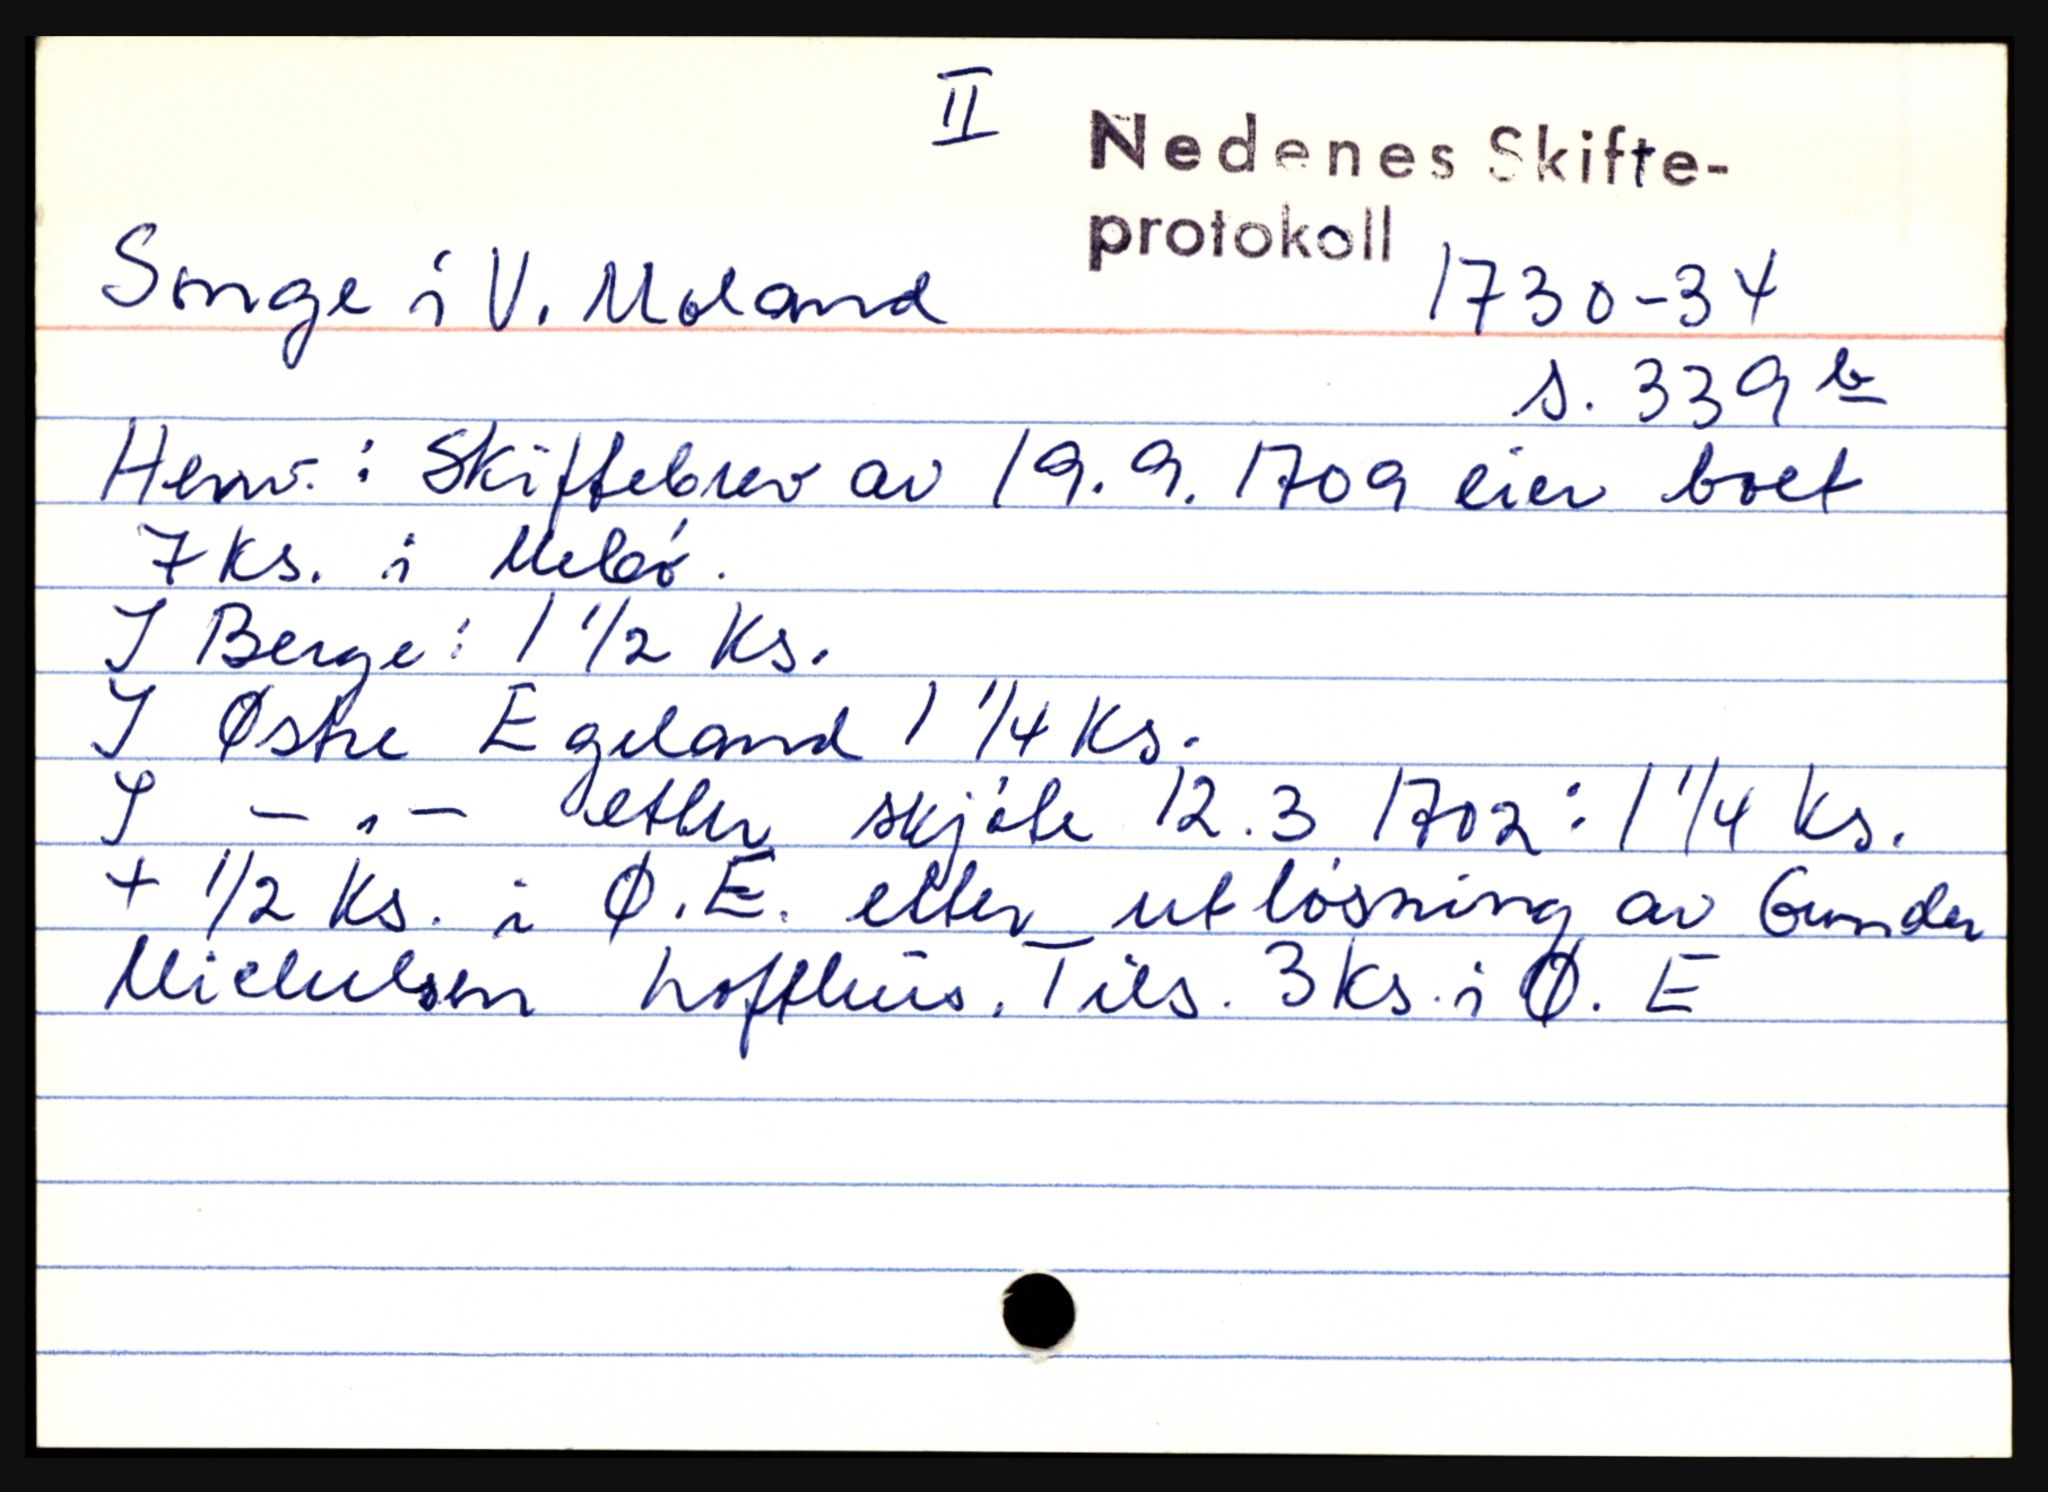 II
Nedenes Skifte-
protokoll
Songe i V. Moland 1730-34
s. 339 b
Henv.: Skiftebrev av 19.9.1709 eier boet
7 ks. i Mebø.
I Berge: 1 1/2 Ks.
I Østre Egeland 1 1/4 Ks.
I — " — etter skjøte 12.3 1702: 1 1/4 Ks.
+ 1/2 Ks. i Ø.E. etter utløsning av Gunder
Michelsen Lofthus. Tils. 3 Ks. i Ø. E